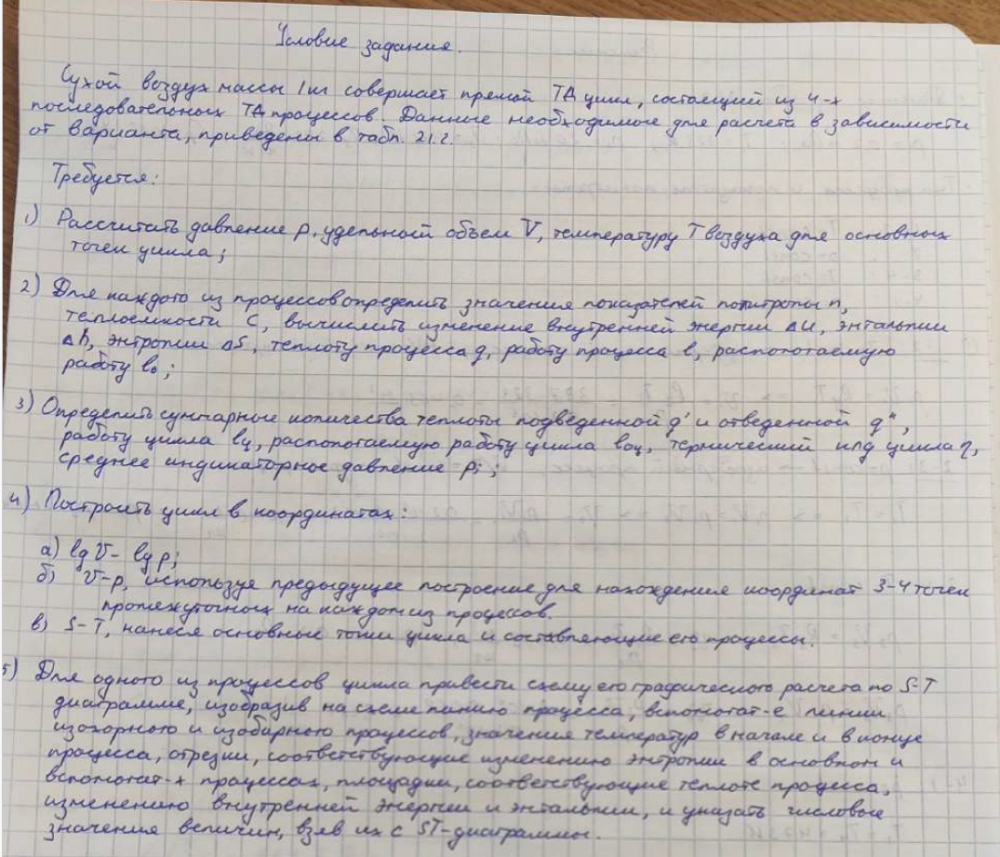 Условие задания.
Сухой воздух массы 1 кг совершает прямой ТД цикл, состоящий из 4-х
последовательных ТД процессов. Данные необходимые для расчета в зависимости
от варианта, приведены в табл. 21.2.
Требуется:
1) Рассчитать давление p, удельный объем V, температуру T воздуха для основных
точек цикла;
2) Для каждого из процессов определить значения показателей политропы n,
теплоемкости C, вычислить изменение внутренней энергии ΔU, энтальпии
Δh, энтропии ΔS, теплоту процесса q, работу процесса l, располагаемую
работу l₀;
3) Определить суммарные количества теплоты подведенной q' и отведенной q",
работу цикла lц, располагаемую работу цикла l₀ц, термический кпд цикла η,
среднее индикаторное давление pᵢ;
4) Построить цикл в координатах:
а) lg V - lg p;
б) V-p, используя предыдущее построение для нахождения координат 3-4 точек
промежуточных на каждом из процессов.
в) S-T, нанеся основные точки цикла и составляющие его процессы.
5) Для одного из процессов цикла привести схему его графического расчета по S-T
диаграмме, изобразив на схеме линию процесса, вспомогат-е линии
изохорного и изобарного процессов, значения температур в начале и в конце
процесса, отрезки, соответствующие изменению энтропии в основном и
вспомогат-х процессах, площадки, соответствующие теплоте процесса,
изменению внутренней энергии и энтальпии, и указать числовые
значения величин, взяв их с ST-диаграммы.